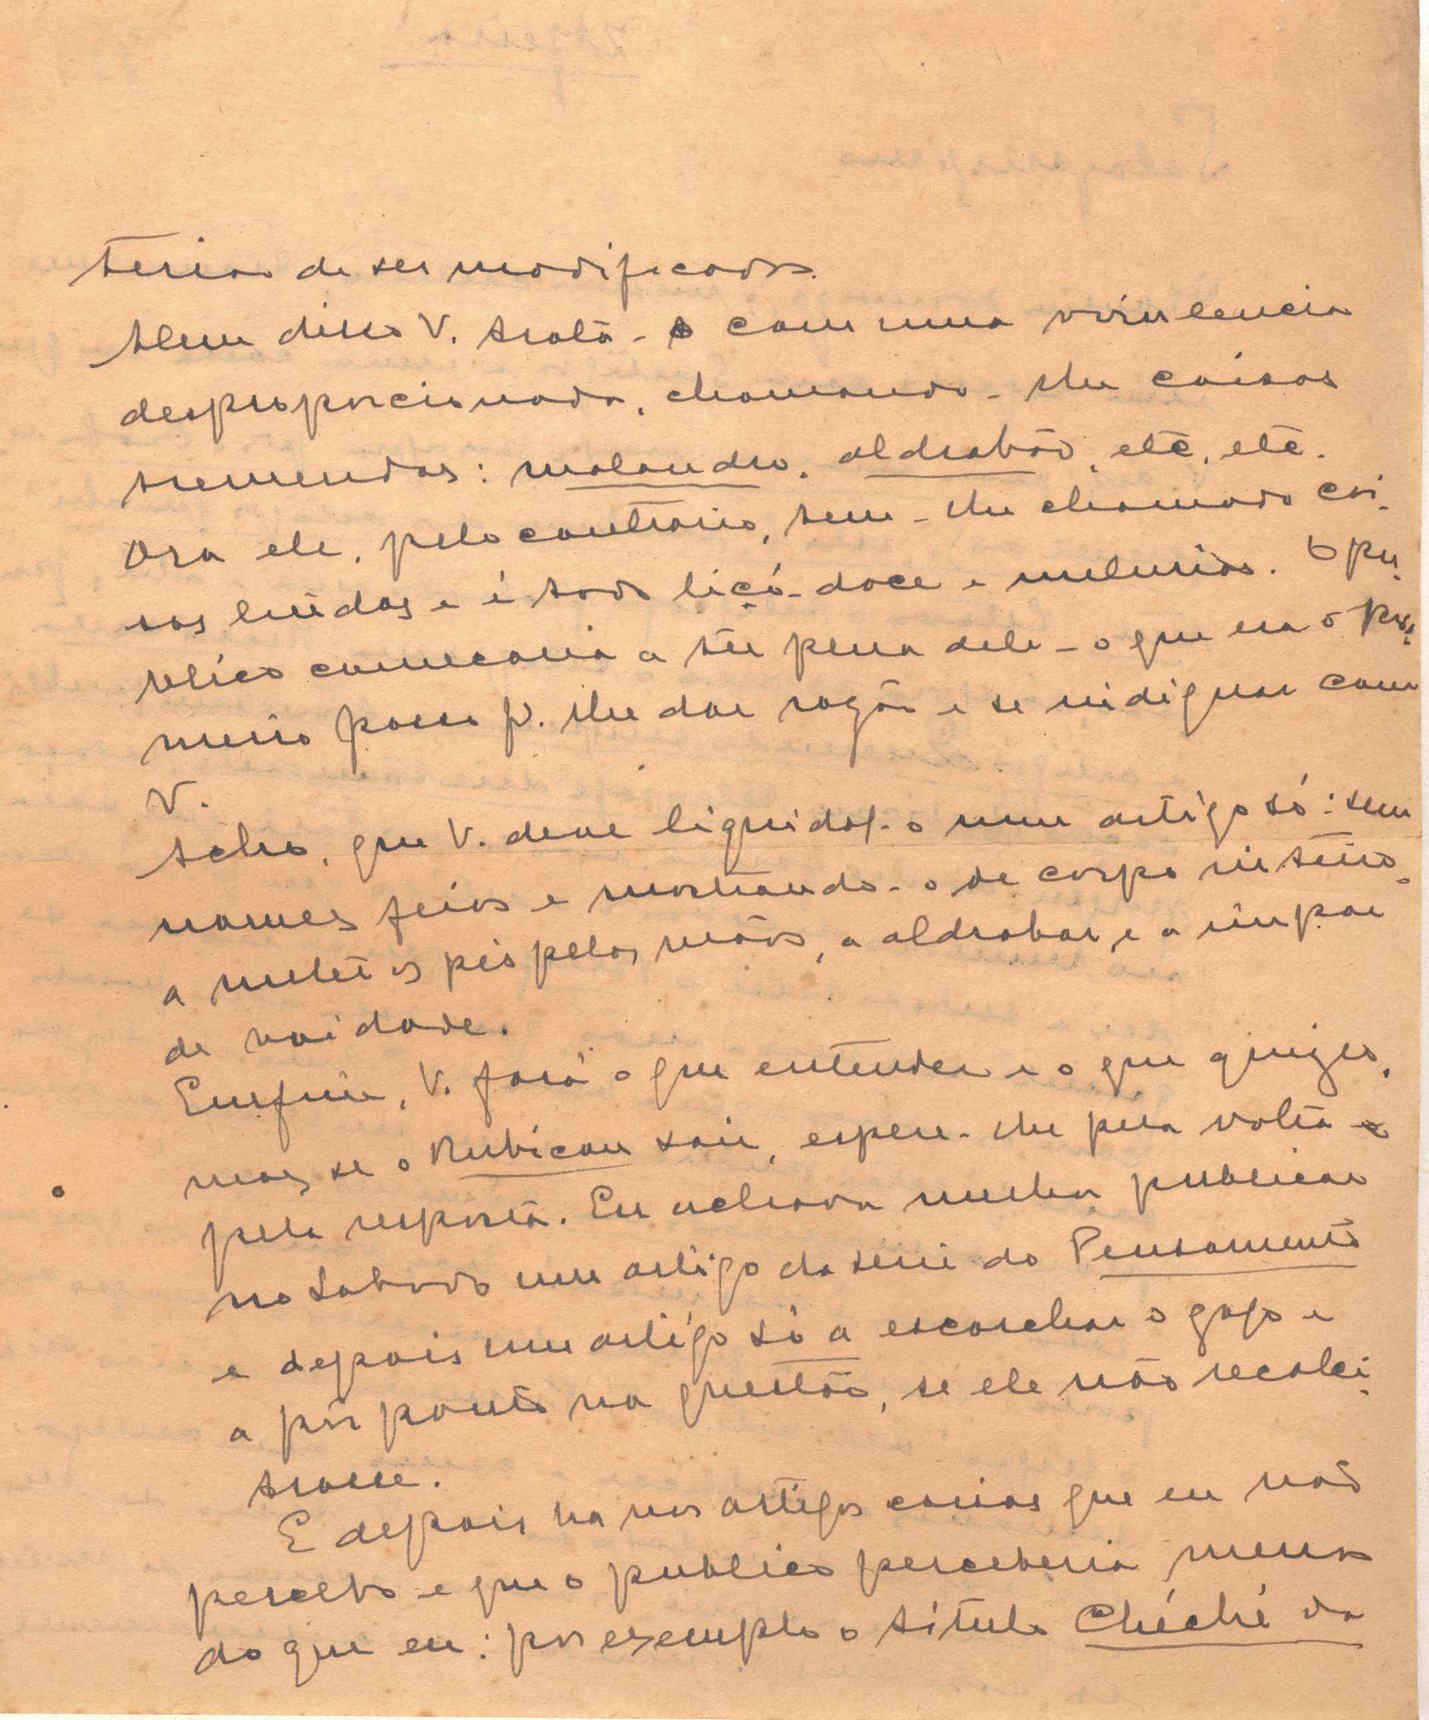 teriam de ser modificados.
Alem disso V. trata-o com uma virulencia
desproporcionada, chamando-lhe coisas
tremendas: malandro, aldrabão, etc, etc.
Ora ele, pelo contrario, tem-lhe chamado coi-
sas lindas e é todo liçó-doce e melurias. O pu-
blico começaria a ter pena dele - o que era o pri-
meiro passo p. lhe dar razão e se indignar com
V.
Acho, que V. deve liquidal-o num artigo só: sem
nomes feios e mostrando-o de corpo inteiro
a meter os pés pelas mãos, a aldrabar e a impar
de vaidade.
Emfim, V. fará o que entender e o que quizer,
mas se o Rubicon sair, espere-lhe pela volta e
pela resposta. Eu achava melhor publicar
no Sabado um artigo da serie do Pensamento
e depois um artigo só a escorchar o gajo e
a pôr ponto na questão, se ele não recalci-
trasse.
E depois ha nos artigos coisas que eu não
percebo e que o publico perceberia menos
do que eu: por exemplo o titulo Chéché da